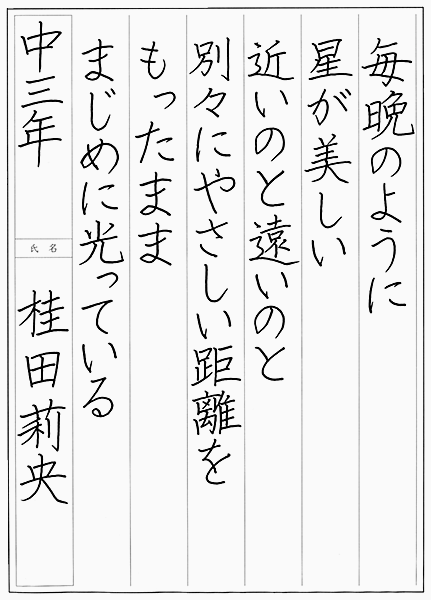 毎晩のように
星が美しい
近いのと遠いのと
別々にやさしい距離を
もったまま
まじめに光っている
中三年
氏名
桂田莉央